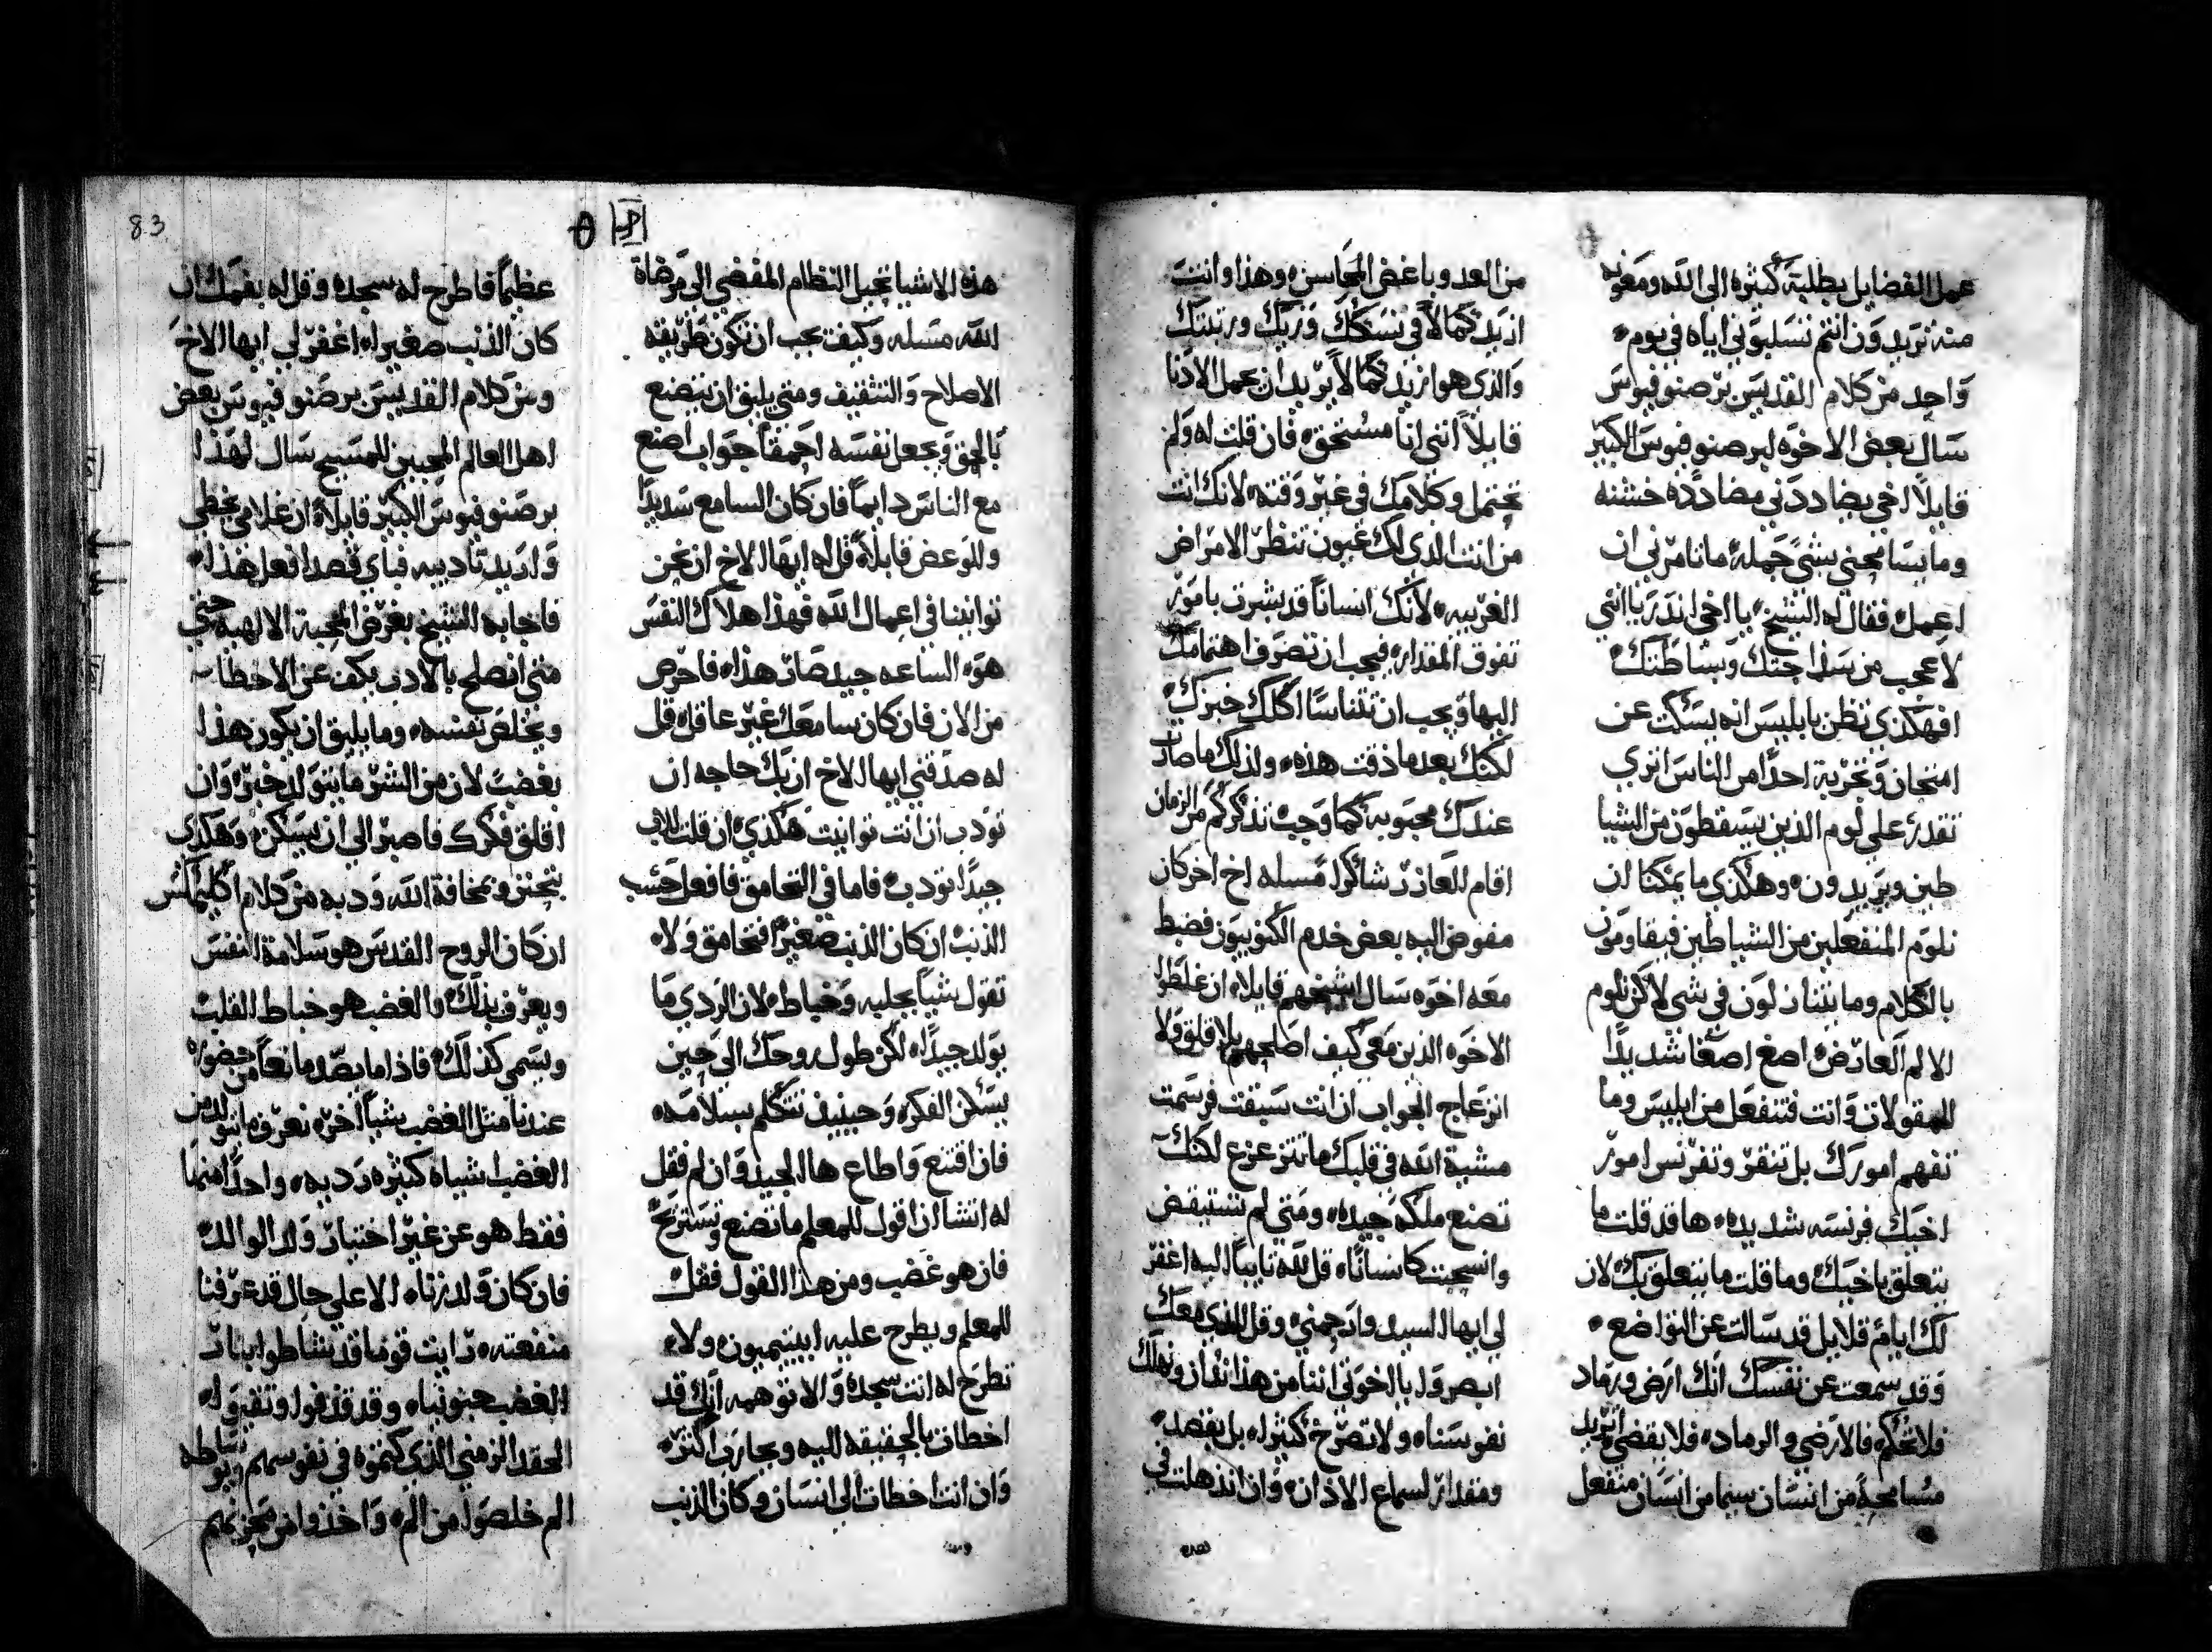 عمل الفضايل بطلبة كثيره الى الله ومعونه
منه تريدون انتم تسلبوني اياه في يوم
واحد من كلام القديس برصنوفيوس
سال بعض الاخوه لبرصنوفيوس الكبير
قايلاً اخي يضاددني مضادده خشنه
وما يسامحني بشي جمله ما تامرني ان
اعمل فقال له الشيخ يا اخي اندريا انني
لاعجب من سذاجتك وبساطتك
افهكذي تظن بابليس انه يسكت عن
امتحان وتجربة احداً من الناس اتري
تقدر علي لوم الذين يسقطون من الشيا
طين ويريدون وهكذي ما يمكنا ان
نلوم المنفعلين من الشياطين فيقاومون
بالكلام وما يتنازلون في شي لاكن نلوم
الالم العارض اصغ اصغا شديداً
للمقولات وانت فتنفعل من ابليس وما
تفهم امورك بل تنقر وتفرنس امور
اخيك فرنسه شديده ها قد قلت ما
يتعلق باخيك وما قلت ما يتعلق بك لان
لك ايام قلايل قد سالت عن التواضع
وقد سمعت عن نفسك انك ارض ورماد
فلا تحكم فالارض والرماد فلا يقضي اتريد
مسامحة من انسان سيما من انسان منفعل
من العدو باغض المحاسن وهذا وانت
ازيد كمالاً في نسكك وزيك ورتبتك
والذي هو ازيد كمالاً يريد ان يعمل الادنا
قايلاً انني انا مستحق فان قلت له ولم
تحتمل وكلامك في غير وقته لانك انت
من انت الذي لك عيون تنظر الامراض
الغريبه لانك انساناً قد بشرت بامور
تفوق المقدار فيجب ان تصرف اهتمامك
اليها ويجب ان تتناسا اكلك خبزك
لكنك بعد ما ذقت هذه ولذلك ما صارت
عندك محبوبه كما وجب تذكركم من الزمان
اقام للعازر شاكرا مسله اخ اخر كان
مفوض اليه بعض خدم الكنوبيون فضبط
معه اخوه سال لشيخهم قايلا ان غلطوا
الاخوه الذين معي كيف اصلحهم بلا قلق ولا
انزعاج الجواب ان انت سبقت فرسمت
مشية الله في قلبك ما تتزعزع لكنك
تصنع ملكه جيده ومتي لم تستيقض
وانسحبت كانساناً قل لله تايباً اليه اغفر
لي ايها السيد وارحمني وقل للذي معك
ابصروا يا اخوتي اننا من هذا نفار ونهلك
نفوسنا ولا تصرخ كثيرا بل بقصد
ومقدار لسماع الاذان وان اندهلت في
هذه الاشيا تخيل النظام المفضي الى مرضاة
الله مسله وكيف يجب ان تكون طريقه
الاصلاح والتثقيف ومتي يليق ان يتضع
بالحق ويجعل نفسه احمقاً جواب اصنع
مع الناس دايماً فان كان السامع سديداً
وللوعض قابلاً قل له ايها الاخ ان نحن
توانينا في اعمال الله فهذا هلاك النفس
هوه الساعه جيد صار هذا فاحرص
من الان فان كان سامعك غير عاقل قل
له صدقني ايها الاخ ان بك حاجه ان
تودب ان انت توانيت هكذي ان قلت للاب
جيداً تودب فاما في التحامق فافعل حسب
الذنب ان كان الذنب صغيراً فتحامق ولا
تقول شياً بجلبه وخباط لان الردي ما
يولد جيداً لكن طول روحك الى حين
يسكن الفكر وحينيذ تتكلم بسلامه
فان اقتنع واطاع ها الجيد وان لم فقل
له اتشا ان اقول للمعلم ما تصنع وتستريح
فان هو غضب ومن هذا القول فقل
للمعلم ويطرح عليه ابيتيميون ولا
تطرح له انت سجده والا توهمه انك قد
اخطات بالحقيقه اليه ويحارب اكثر
وان انت اخطات الى انسان وكان الذنب
83
عظيماً فاطرح له سجده وقل له بفمك ان
كان الذنب صغيرا اغفر لي ايها الاخ
ومن كلام القديس برصنوفيوس بعض
اهل العالم المحبين للمسيح سال لهذا
برصنوفيوس الكبير قايلاً ان غلامي يخطي
واريد تاديبه فباي قصد افعل هذا
فاجابه الشيخ بغرض المحبة الالهيه حتي
متي انصلح بالادب يكف عن الاخطات
ويخلص نفسه وما يليق ان يكون هذا
بغضب لان من الشر ما يتولد خير وان
اقلق فكرك فاصبر الي ان يسكن وهكذي
بتحنن وبمخافة الله ودبه من كلام اكليماكس
ان كان الروح القدس هو سلامة النفس
ويعرف بذلك والغضب هو خباط القلب
ويسمي كذلك فاذا ما يصد مانعاً من حضوره
عندنا مثل الغضب شياً اخر نعرف ما يتولد من
الغضب اشياه كثيره رديه واحداً منها
فقط هو عن غير اختبار ولد الوالد
فان كان ولد زناه الا علي حال قد عرفنا
منفعته رايت قوماً قد تشاطوا بنار
الغضب جنونيا وقد قذفوا وتقيوا
الحقد الزمني الذي كتموه في نفوسهم وبوساطه
الم خلصوا من الم واخذوا من محزنهم